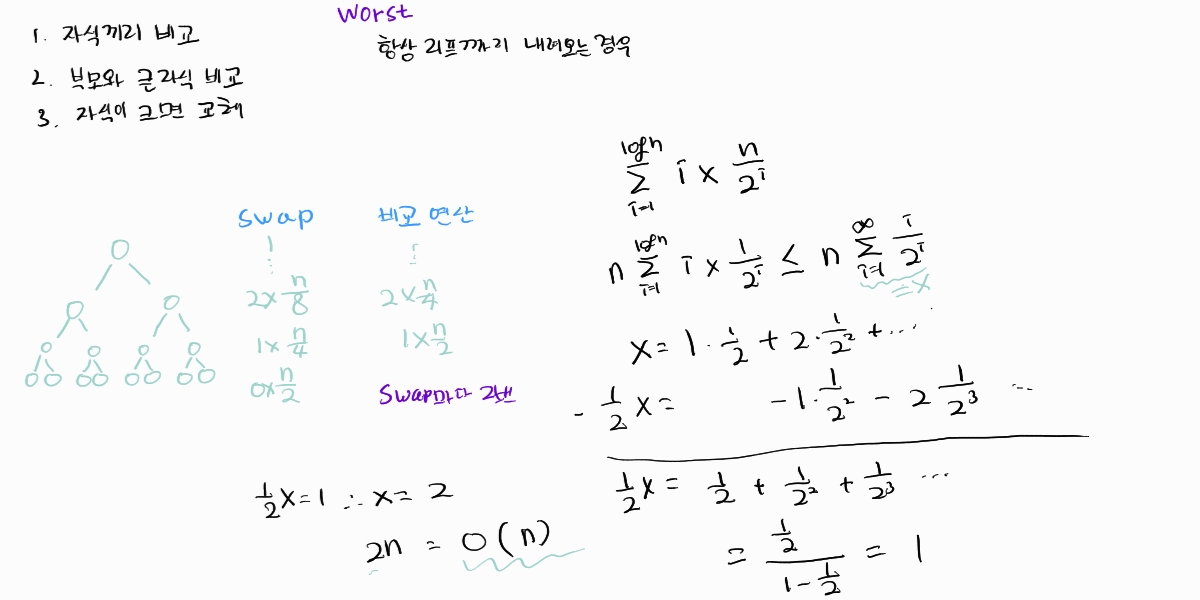 1. 자식끼리 비교
2. 부모와 큰자식 비교
3. 자식이 크면 교체
Worst
항상 리프까지 내려오는 경우
Swap
1
⋮
2×n/8
1×n/4
0×n/2
비교 연산
⋮
2×n/4
1×n/2
Swap마다 2번
∑_{i=1}^{logn} i × n/2^i
n ∑_{i=1}^{logn} i × 1/2^i ≤ n ∑_{i=1}^{∞} i/2^i
=X
X = 1·1/2 + 2·1/2² + ...
- 1/2 X = -1·1/2² - 2 1/2³ ...
1/2 X = 1/2 + 1/2² + 1/2³ ...
= (1/2)/(1-1/2) = 1
1/2 X = 1 ∴ X = 2
2n = O(n)